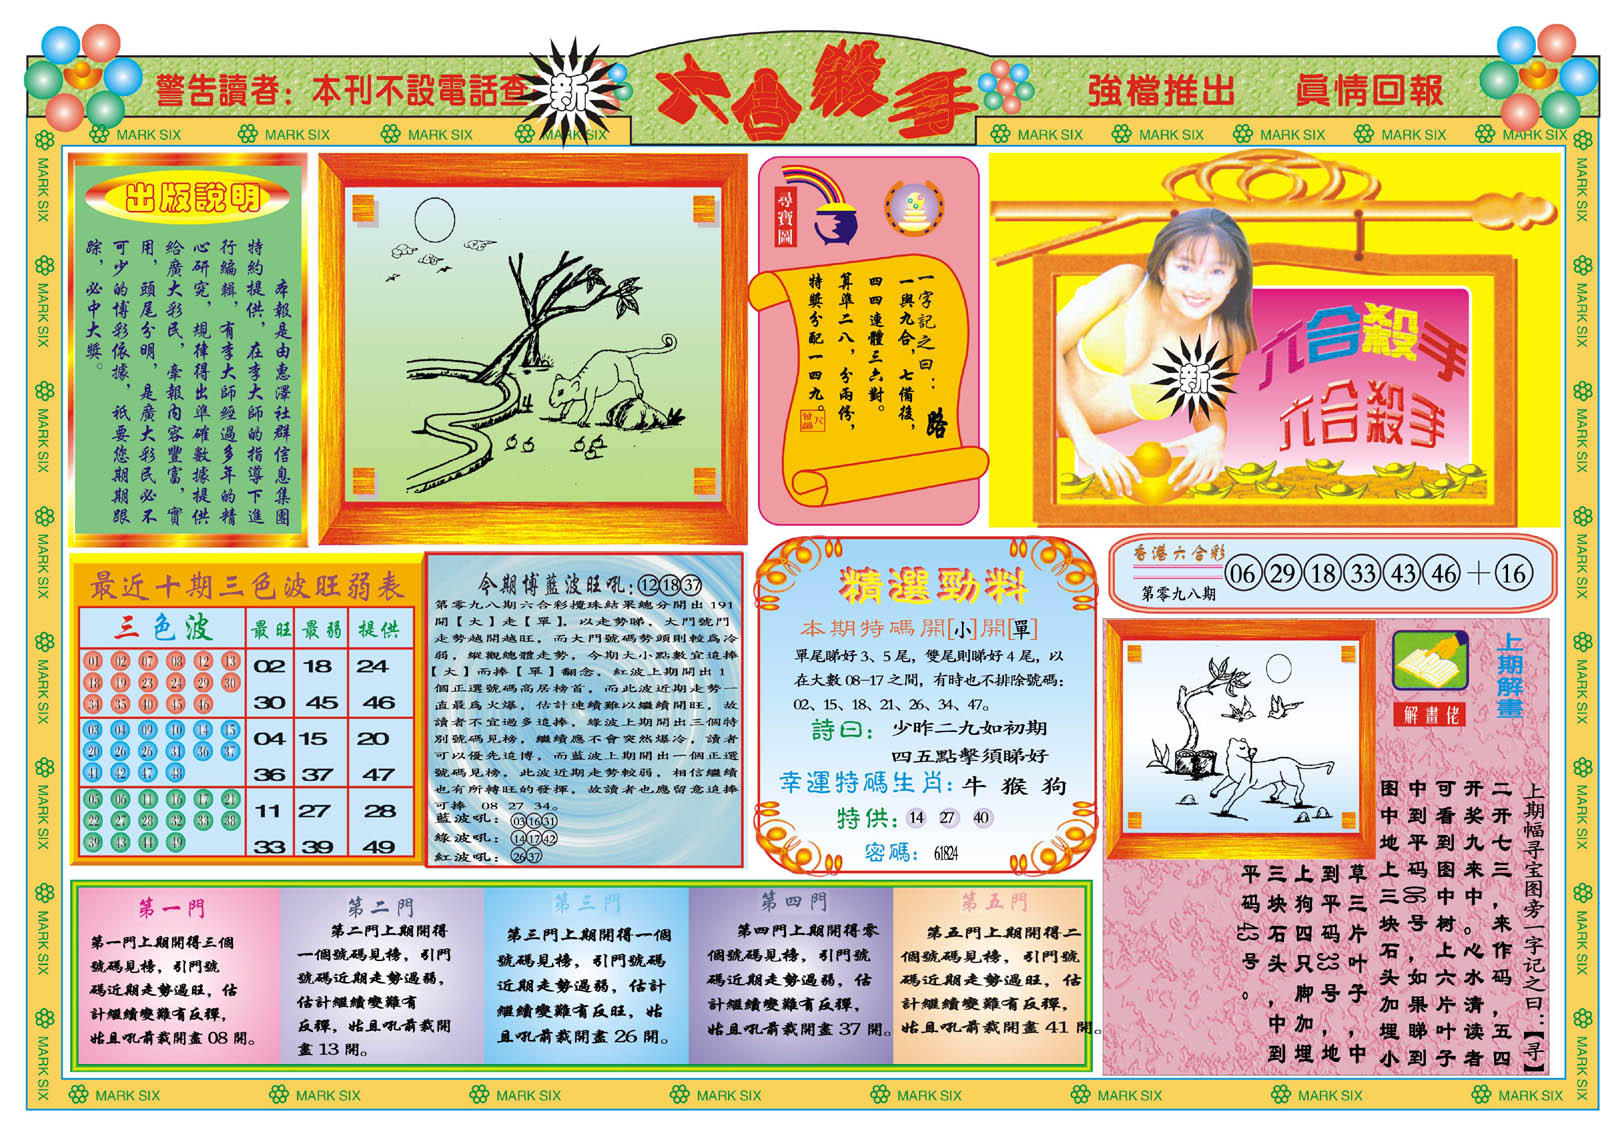 警告讀者：本刊不設電話查
新
六合殺手
強檔推出 眞情回報
MARK SIX MARK SIX MARK SIX MARK SIX
MARK SIX MARK SIX MARK SIX MARK SIX MARK SIX
出版說明
本報是由惠澤社群信息集團
特約提供，在李大師的指導下進
行編輯，有李大師經過多年的精
心研究，規律得出準確數據提供
給廣大彩民，牽報内容豐富，實
用，頭尾分明，是廣大彩民必不
可少的博彩依據，祇要您期期跟
踪，必中大獎。
尋寶圖
一字記之曰：路
一與九合，七備後，
四四連體三六對。
算準二八，分兩份，
特獎分配一四九。
新
六合殺手
六合殺手
最近十期三色波旺弱表
三色波 最旺 最弱 提供
01 02 07 08 12 13
18 19 23 24 29 30
34 35 40 45 46
02 18 24
30 45 46
03 04 09 10 14 15
20 26 25 31 36 37
41 42 47 48
04 15 20
36 37 47
05 06 11 16 17 21
22 27 28 32 33 38
39 43 44 49
11 27 28
33 39 49
今期博藍波旺吼：12 18 37
第零九八期六合彩攪珠結果總分開出 191
開【大】走【單】，以走勢睇，大門號門
走勢越開越旺，而大門號碼勢頭則較爲冷
弱，縱觀總體走勢，今期大小點數宜追捧
【大】而捧【單】翻念，紅波上期開出 1
個正選號碼高居榜首，而此波近期走勢一
直最爲火爆，估計連續難以繼續開旺，故
讀者不宜過多追捧，綠波上期開出三個特
別號碼見榜，繼續應不會突然爆冷，讀者
可以優先追博，而藍波上期開出一個正選
號碼見榜，此波近期走勢較弱，相信繼續
也有所轉旺的發揮，故讀者也應留意追捧
可捧 08 27 34。
藍波吼：03 16 31
綠波吼：14 17 42
紅波吼：26 37
精選勁料
本期特碼開[小]開[單]
單尾睇好 3、5 尾，雙尾則睇好 4 尾，以
在大數 08-17 之間，有時也不排除號碼：
02、15、18、21、26、34、47。
詩曰：少昨二九如初期
四五點擊須睇好
幸運特碼生肖：牛 猴 狗
特供：14 27 40
密碼：61824
香港六合彩
第零九八期
06 29 18 33 43 46 + 16
上期解畫
解畫佬
上期幅寻宝图旁一字记之曰：【寻】
二开七三，来作码，五四
开奖九来中。心水清读者
可看到图中树上六片叶子
中到平码06号，如果睇到
图中地上三块石头加埋小
草三片叶子，中
到平码33号，地
上狗四只脚加埋
三块石头，中到
平码43号。
第一門
第一門上期開得三個
號碼見榜，引門號
碼近期走勢過旺，估
計繼續變難有反彈，
姑且吼前裁開盡 08 開。
第二門
第二門上期開得
一個號碼見榜，引門
號碼近期走勢過弱，
估計繼續變難有
反彈，姑且吼前裁開
盡 13 開。
第三門
第三門上期開得一個
號碼見榜，引門號碼
近期走勢過弱，估計
繼續變難有反旺，姑
且吼前裁開盡 26 開。
第四門
第四門上期開得零
個號碼見榜，引門號
碼近期走勢過弱，估
計繼續變難有反彈，
姑且吼前裁開盡 37 開。
第五門
第五門上期開得二
個號碼見榜，引門號
碼近期走勢過旺，估
計繼續變難有反彈，
姑且吼前裁開盡 41 開。
MARK SIX MARK SIX MARK SIX MARK SIX MARK SIX MARK SIX MARK SIX MARK SIX
MARK SIX MARK SIX MARK SIX MARK SIX MARK SIX MARK SIX MARK SIX MARK SIX
MARK SIX MARK SIX MARK SIX MARK SIX MARK SIX MARK SIX MARK SIX MARK SIX